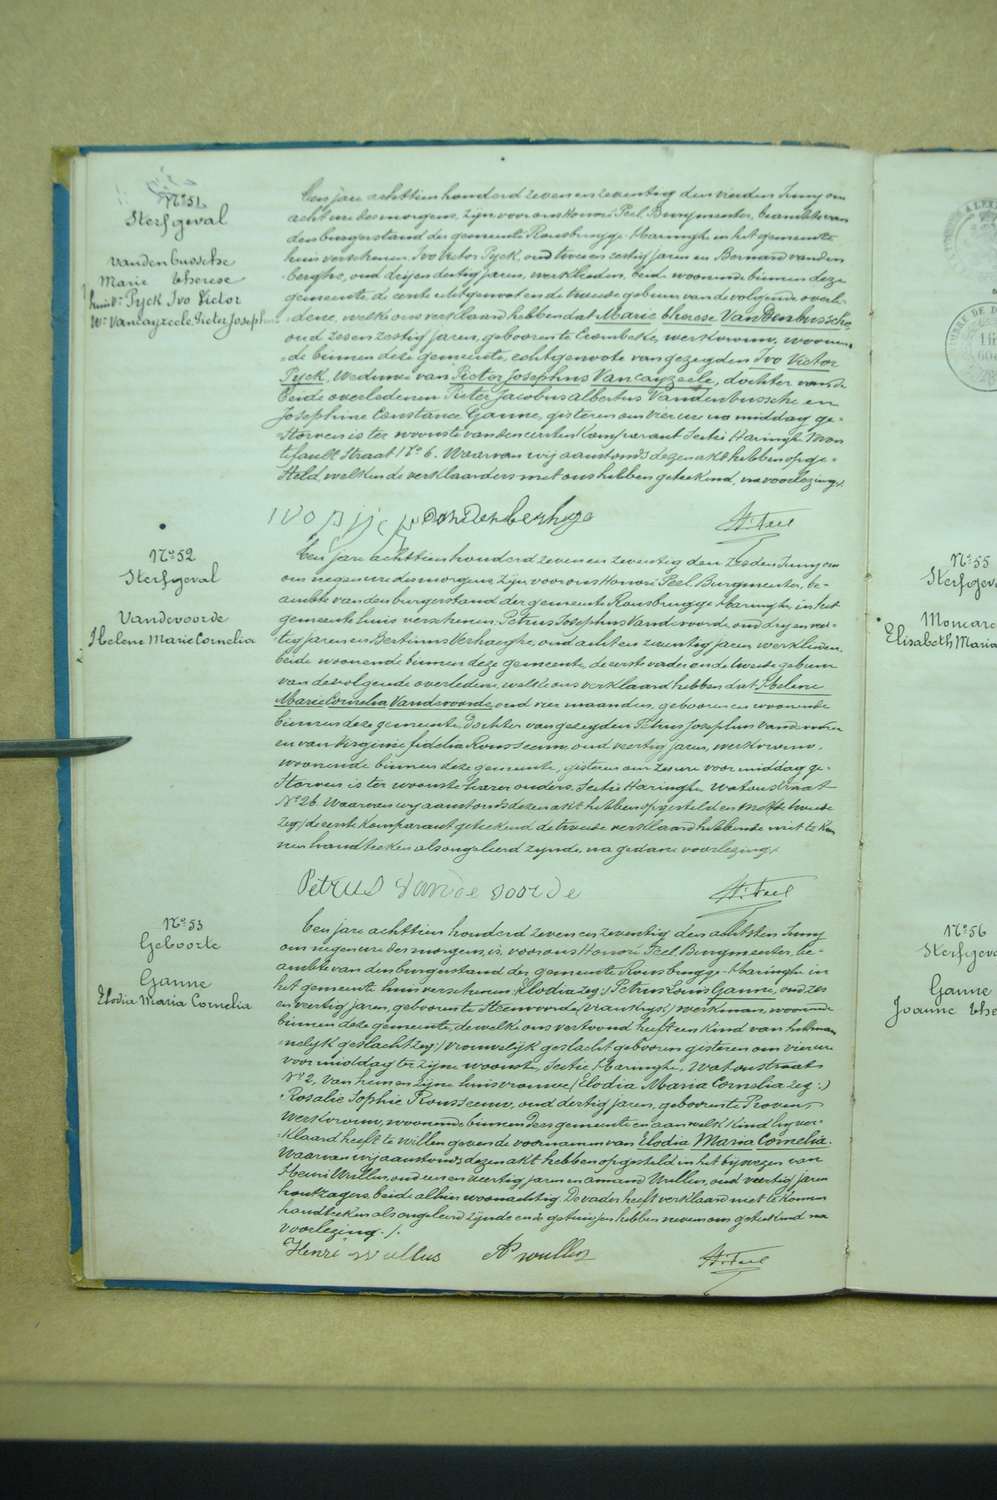 N° 51
Sterfgeval
Vandenbussche
Marie therese
huisvr. Pyck Ivo Victor
We Vancayzeele Pieter Joseph
Een jare achttien honderd zeven en zeventig den vierden Juny om
acht ure des morgens, zijn voor ons Honoré Peel Burgmeester, beambte van
den burgerstand der gemeente Rousbrugge-Haringhe in het gemeente
huis verschenen Ivo Victor Pyck, oud twee en zestig jaren en Bernard vanden
berghe, oud drij en dertig jaren, werklieden, beide woonende binnen deze
gemeente, de eerste echtgenoot en de tweede gebuur van de volgende overle-
dene, welke ons verklaard hebben dat Marie therese Vandenbussche,
oud zes en zestig jaren, geboren te Crombeke, werkvrouw, woonen-
de binnen deze gemeente, echtgenoote van gezegden Ivo Victor
Pyck, Weduwe van Pieter Josephus Vancayzeele, dochter van de
beide overledenen Pieter Jacobus Albertus Vandenbussche en
Josephine Constance Ganne, gisteren om vier ure na middag ge-
storven is ter woonste van den eersten Komparant Sectie Haringhe
Straat N° 6. Waarvan wij aanstonds dezen akt hebben opge-
steld, welken de verklaarders met ons hebben geteekend, na voorlezing.
Ivo pijck vandenberhge H. Peel
N° 52
Sterfgeval
Vandevoorde
Helene Marie Cornelia
Een jare achttien honderd zeven en zeventig den zesden Juny
om negen ure des morgens zijn voor ons Honoré Peel Burgmeester, be-
ambte van den burgerstand der gemeente Rousbrugge-Haringhe in het
gemeente huis verschenen Petrus Josephus Vandevoorde, oud drij en veer-
tig jaren en Bertinus Verhaeghe, oud acht en zeventig jaren werklieden,
beide woonende binnen deze gemeente, de eerste vader en de tweede gebuur
van de volgende overledene, welke ons verklaard hebben dat Helene
Marie Cornelia Vandevoorde, oud vier maanden, geboren en woonende
binnen deze gemeente, dochter van gezegden Petrus Josephus Vandevoorde
en van Virginie fidelia Rousseeuw, oud veertig jaren, werkvrouw,
woonende binnen deze gemeente, gisteren om zes ure voor middag ge-
storven is ter woonste harer ouders, Sectie Haringhe Watoustraat
N° 26. Waarvan wij aanstonds dezen akt hebben opgesteld en
zeg: de eerste Komparant geteekend de tweede verklaard hebbende niet te kon
nen handteeken als ongeleerd zijnde, na gedane voorlezing.
Petrus Vandevoorde H. Peel
N° 53
Geboorte
Ganne
Elodia Maria Cornelia
Een jare achttien honderd zeven en zeventig den achtsten Juny
om negen ure des morgens, is voor ons Honoré Peel Burgmeester, be-
ambte van den burgerstand der gemeente Rousbrugge-Haringhe in
het gemeente huis verschenen (Elodia zeg:) Petrus Louis Ganne, oud zes
en veertig jaren, geboren te Steenvoorde (Frankrijk) werkman, woonende
binnen deze gemeente, dewelke ons vertoond heeft een kind van het man-
nelijk geslacht zeg:) Vrouwelijk geslacht geboren gisteren om vier ure
voor middag ter zijne woonste, Sectie Haringhe, Watoustraat
N° 2, van hem en zijne huisvrouwe (Elodia Maria Cornelia zeg:)
Rosalie Sophie Rousseeuw, oud dertig jaren, geboren te Proven,
werkvrouw, woonende binnen deze gemeente en aan welk kind hij ver-
klaard heeft te willen geven de voornamen van Elodia Maria Cornelia.
Waarvan wij aanstonds dezen akt hebben opgesteld in het bijwezen van
Henri Wullus, oud een en veertig jaren en amand Wullen, oud veertig jaren
houtzagers, beide alhier woonachtig. De vader heeft verklaard niet te konnen
handteeken als ongeleerd zijnde en de getuigen hebben nevens ons geteekend na
voorlezing.
Henri Wullus A Wullen H. Peel
N° 55
Sterfgeva
Moncare
Elisabeth Maria
N° 56
Sterfgeva
Ganne
Joanne the